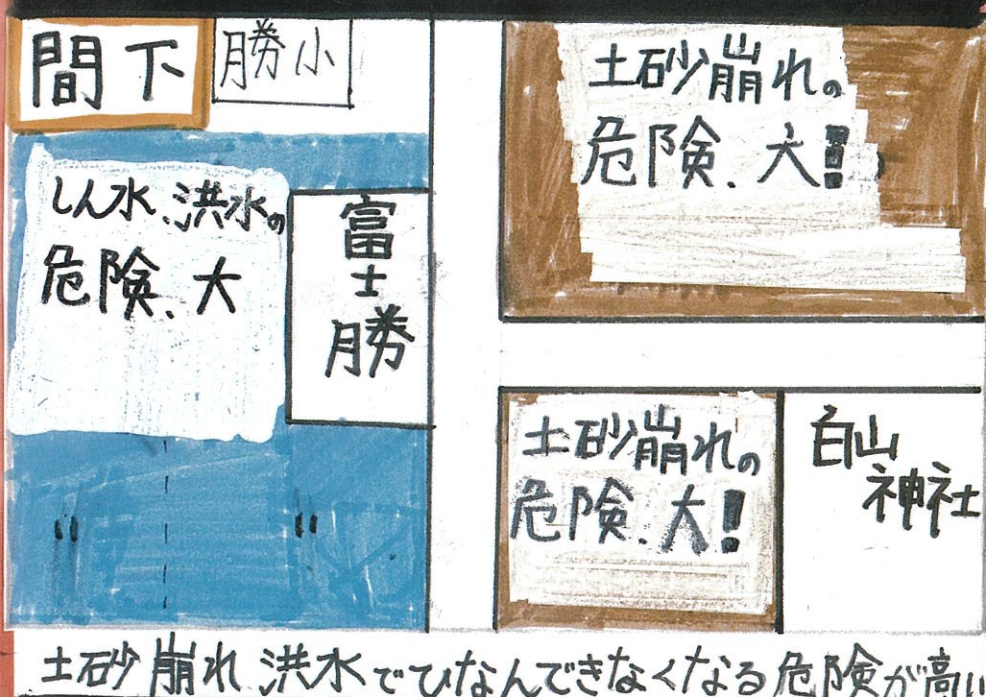 間下
勝小
しん水、洪水の
危険、大
富士勝
土砂崩れの
危険、大!!
土砂崩れの
危険、大!
白山
神社
土砂崩れ 洪水でひなんできなくなる危険が高い